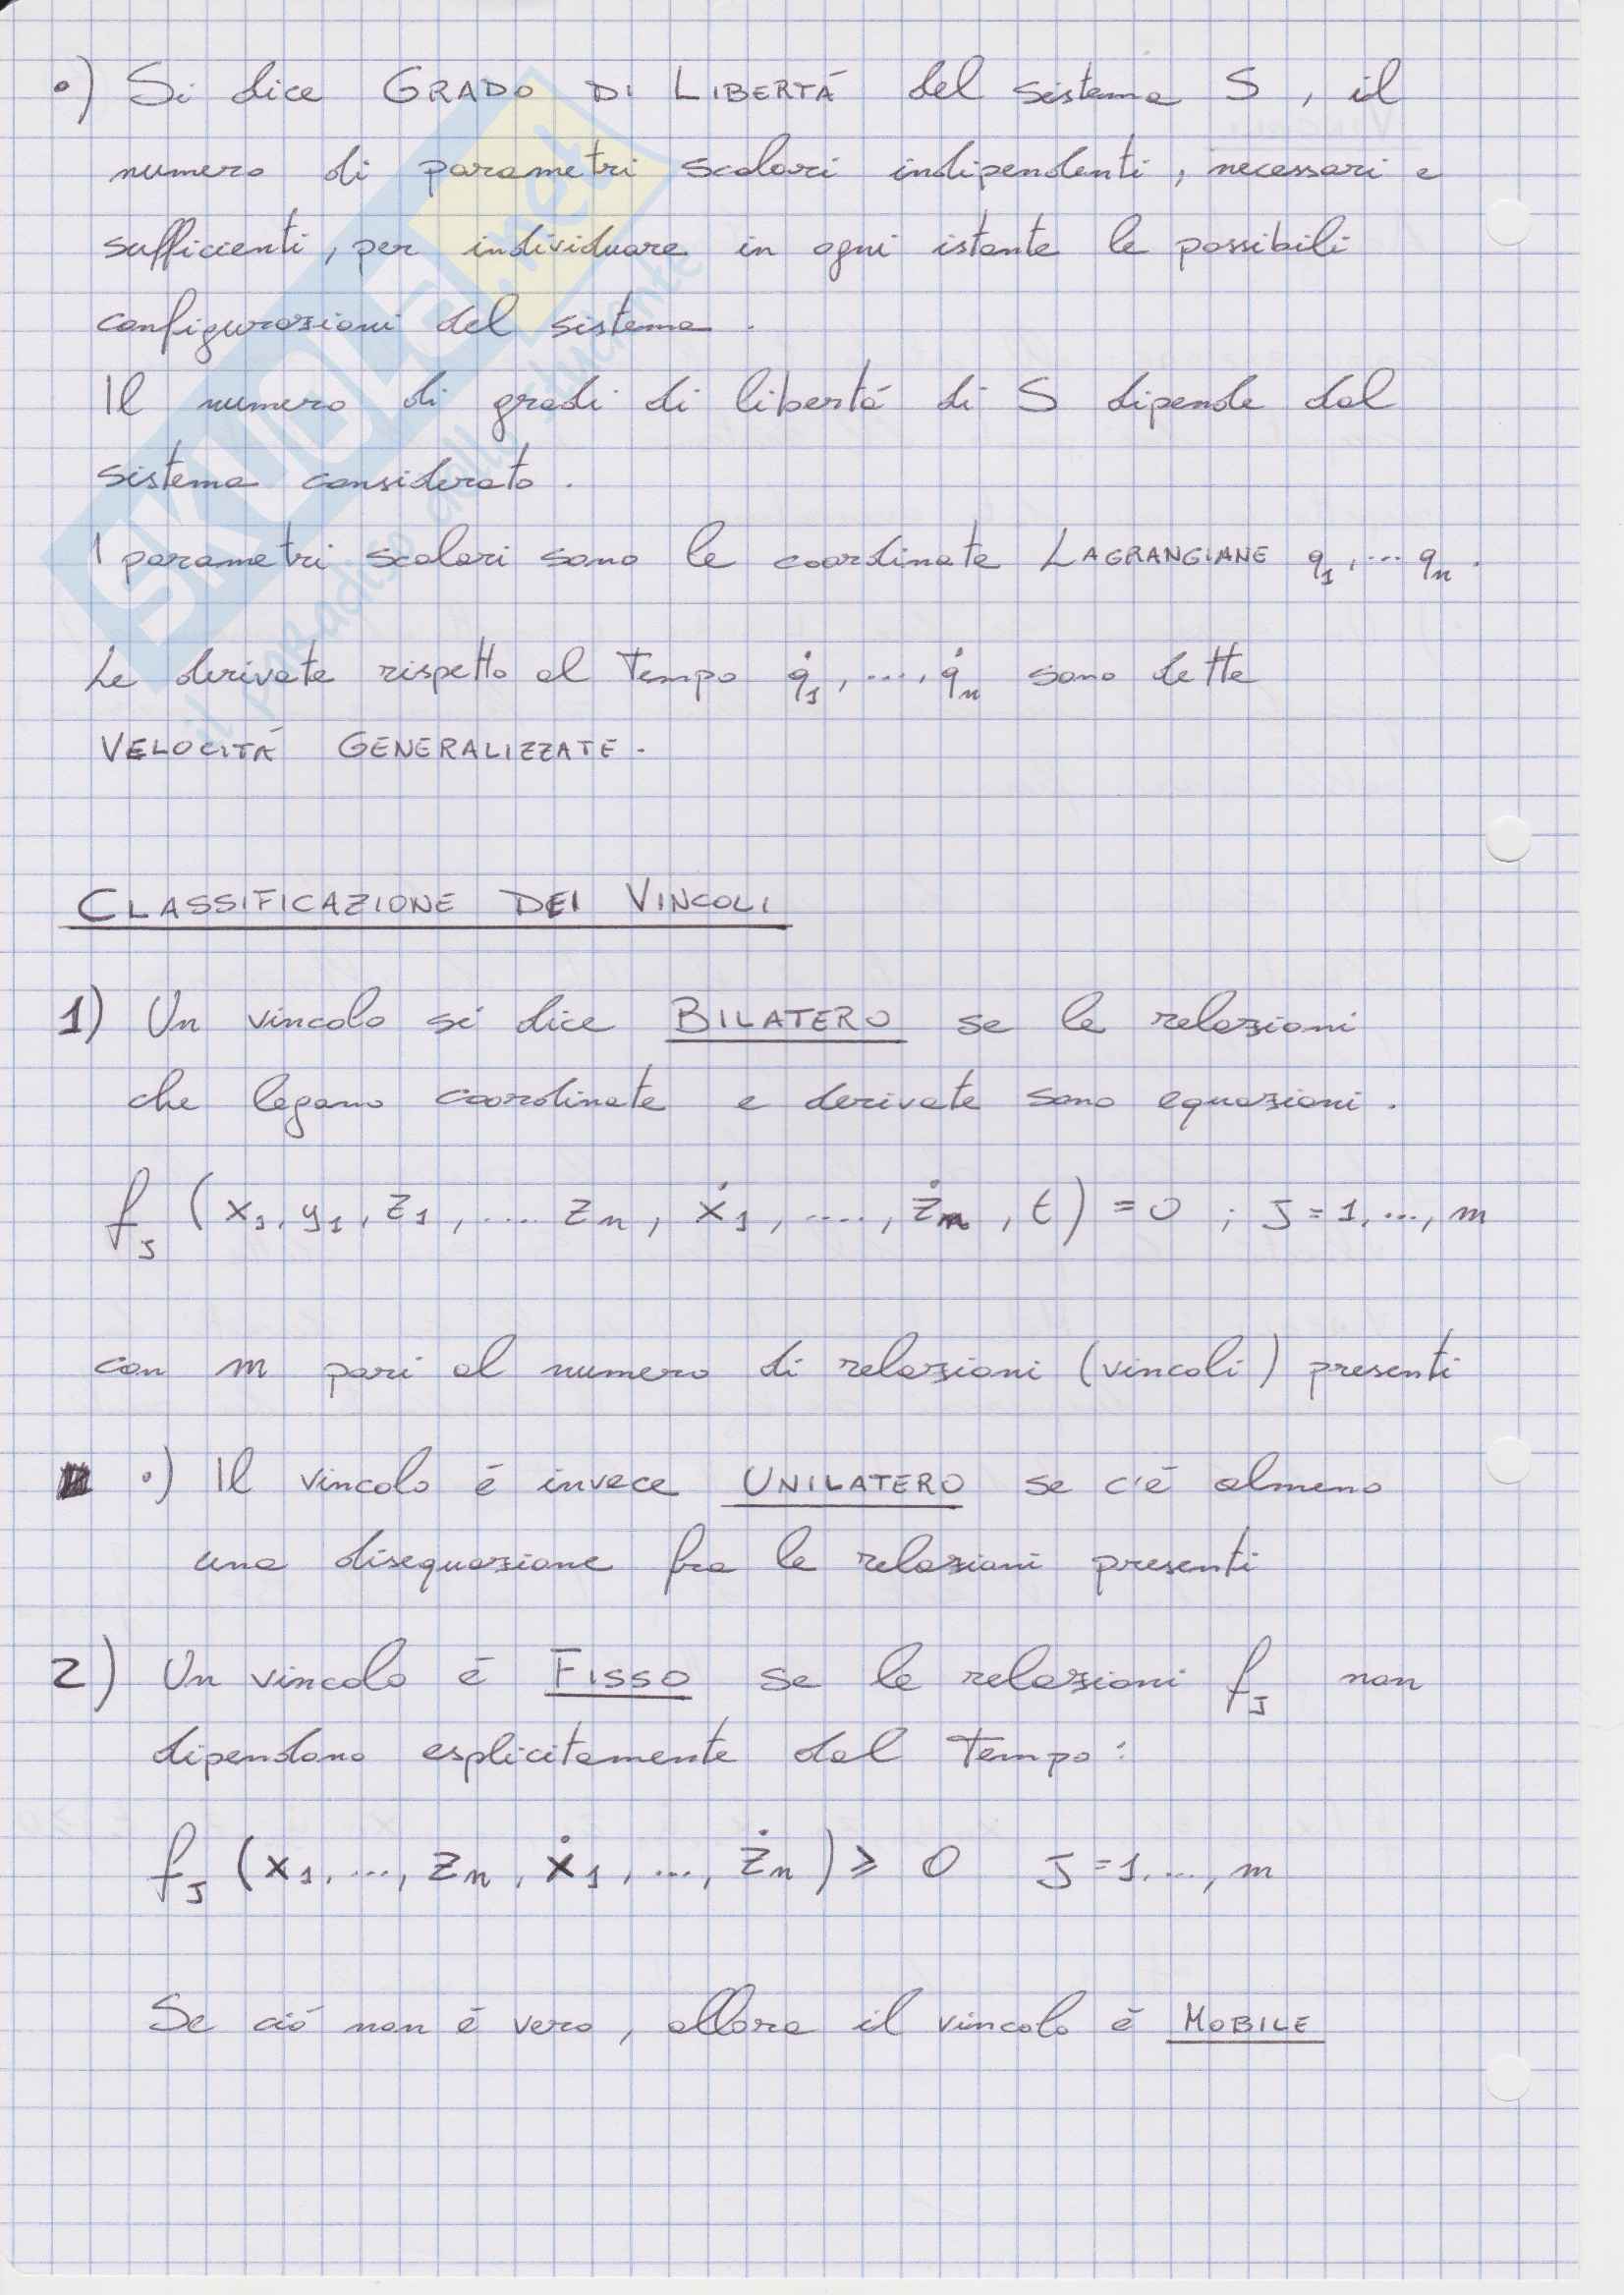 •) Si dice GRADO DI LIBERTÁ del sistema S, il
numero di parametri scalari indipendenti, necessari e
sufficienti, per individuare in ogni istante le possibili
configurazioni del sistema.
Il numero di gradi di libertá di S dipende dal
sistema considerato.
I parametri scalari sono le coordinate LAGRANGIANE q₁, ... qₙ.
Le derivate rispetto al tempo q̇₁, ...., q̇ₙ sono dette
VELOCITÁ GENERALIZZATE.
CLASSIFICAZIONE DEI VINCOLI
1) Un vincolo si dice BILATERO se le relazioni
che legano coordinate e derivate sono equazioni.
f_J (x₁, y₁, z₁, .... zₙ, ẋ₁, ...., żₙ, t) = 0 ; J = 1, ..., m
con m pari al numero di relazioni (vincoli) presenti
•) Il vincolo é invece UNILATERO se c'é almeno
una disequazione fra le relazioni presenti
2) Un vincolo é FISSO se le relazioni f_J non
dipendono esplicitamente dal tempo:
f_J (x₁, ..., zₙ, ẋ₁, ..., żₙ) ⩾ 0 J = 1, ..., m
Se ció non é vero, allora il vincolo é MOBILE
SKUOLA.net
il paradiso dello studente